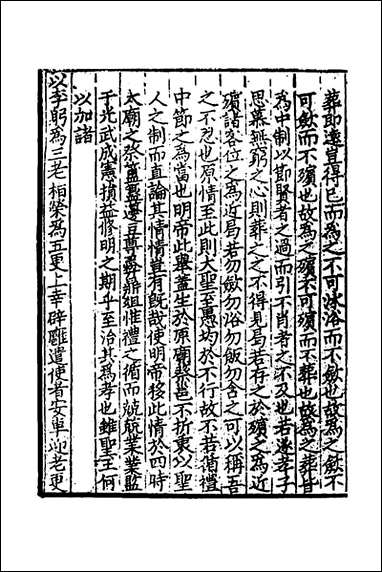 葬即遠豈得已而為之不可沐浴而不斂也故為之斂不
可斂而不殯也故為之殯不可殯而不葬也故為之葬皆
為中制以節賢者之過而引不肖者之不及也若遂孝子
思慕無窮之心則葬之之不得見曷若存之於殯之為近
殯諸客位之為近曷若勿斂勿浴勿飯勿含之可以稱吾
之不忍也原情至此則大聖至愚均於不行故不若循禮
中節之為當也明帝此舉蓋生於原廟蔡邕不折衷以聖
人之制而直論其情情豈有既哉使明帝移此情於四時
太廟之祭簠簋籩豆尊彝鼎俎惟禮之循而兢兢業業監
于光武成憲損益修明之期乎至治其為孝也雖聖王何
以加諸
以李躬為三老桓榮為五更上幸辟雍遣使者安車迎老更